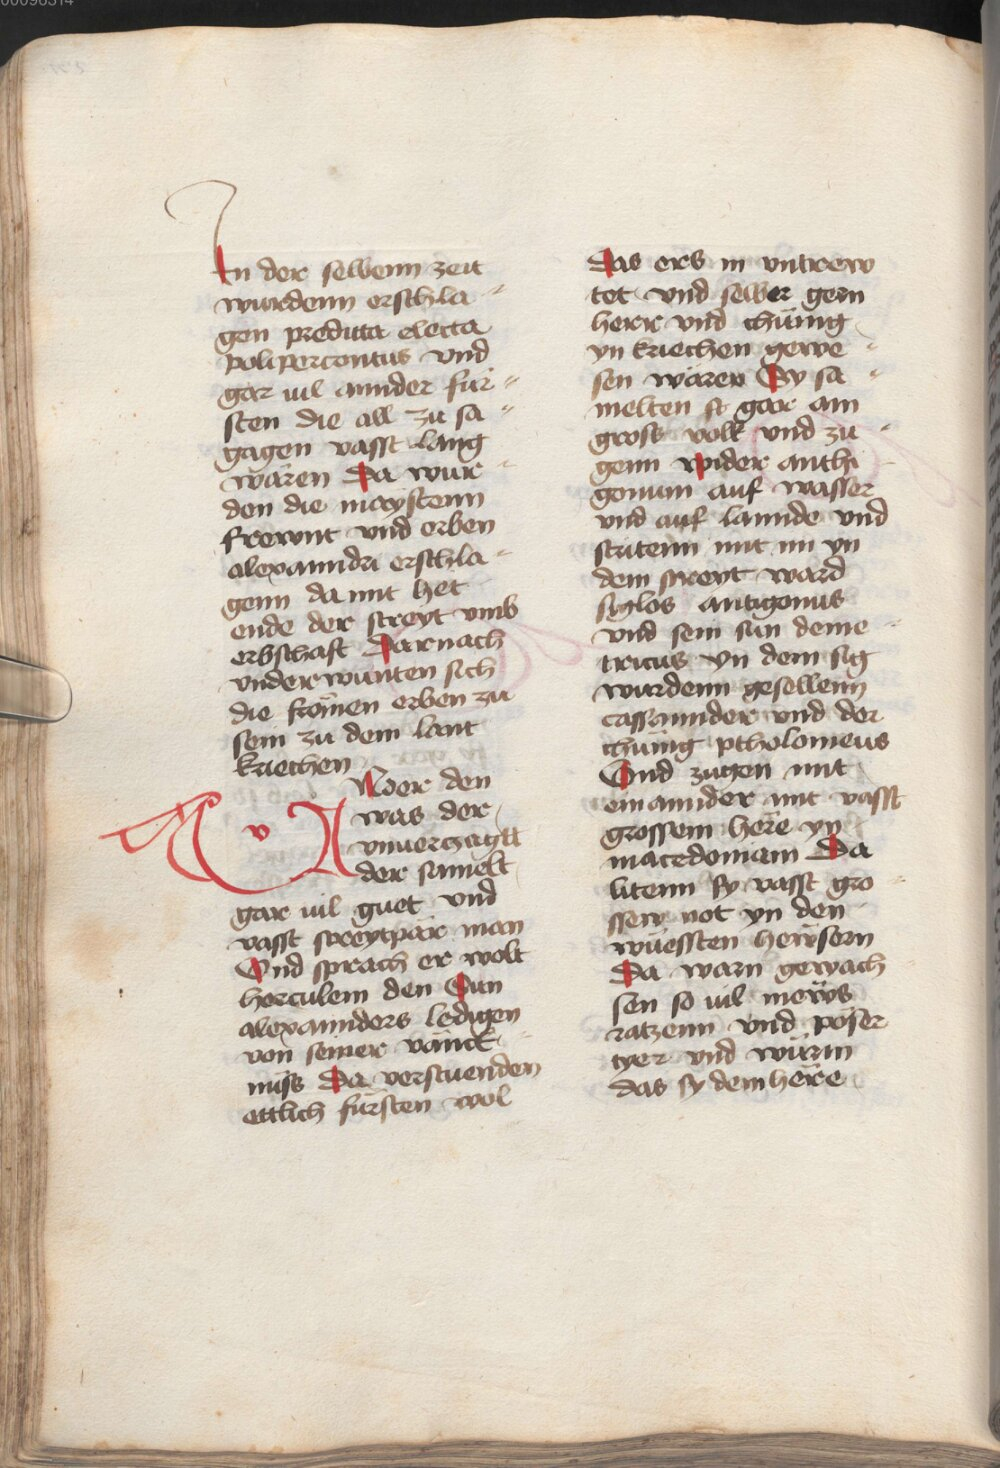 00096314
In der selbenn zeit
wurdenn erschla⸗
gen preduta electa
polipercontus vnd
gar uil annder fur⸗
sten die all zu sa⸗
gagen vasst lang
waren Da wur⸗
den die maystenn
frewnt vnd erben
alexanndri erschla⸗
genn da mit het
ende der streyt vmb
erbschaft Darnach
vnderwunten sich
die fromen erben zu
sein zu dem lant
kriechen
Aber den
was der
vnuerzagtt
der samelt
gar uil guet vnd
vasst streytpär man
Vnd sprach er wolt
herculem den Sun
alexannders ledigen
von seiner vänck⸗
nuss Da verstuenden
ettlich fürsten wol
Das ers in vntrew
tet vnd selber gern
herr vnd chünig
yn kriechen gewe⸗
sen wären Sy sa⸗
melten so gar am
gross volk vnd zu⸗
genn wider anthi⸗
gonum auf wasser
vnd auf lannde vnd
stritenn mit im yn
dem streyt ward
siglos antigonus
vnd sein sun deme⸗
tricus yn dem sig
wurdenn gesellenn
cassannder vnd der
chünig ptholomeus
Vnd zugen mit
einannder mit vasst
grossem here yn
macedoniam Da
litenn sy vasst gro⸗
ssew not yn den
wüessten hewsern
Da warn gewach⸗
sen so uil mews
ratzenn vnd poser
tyer vnd würm
das sy dem here